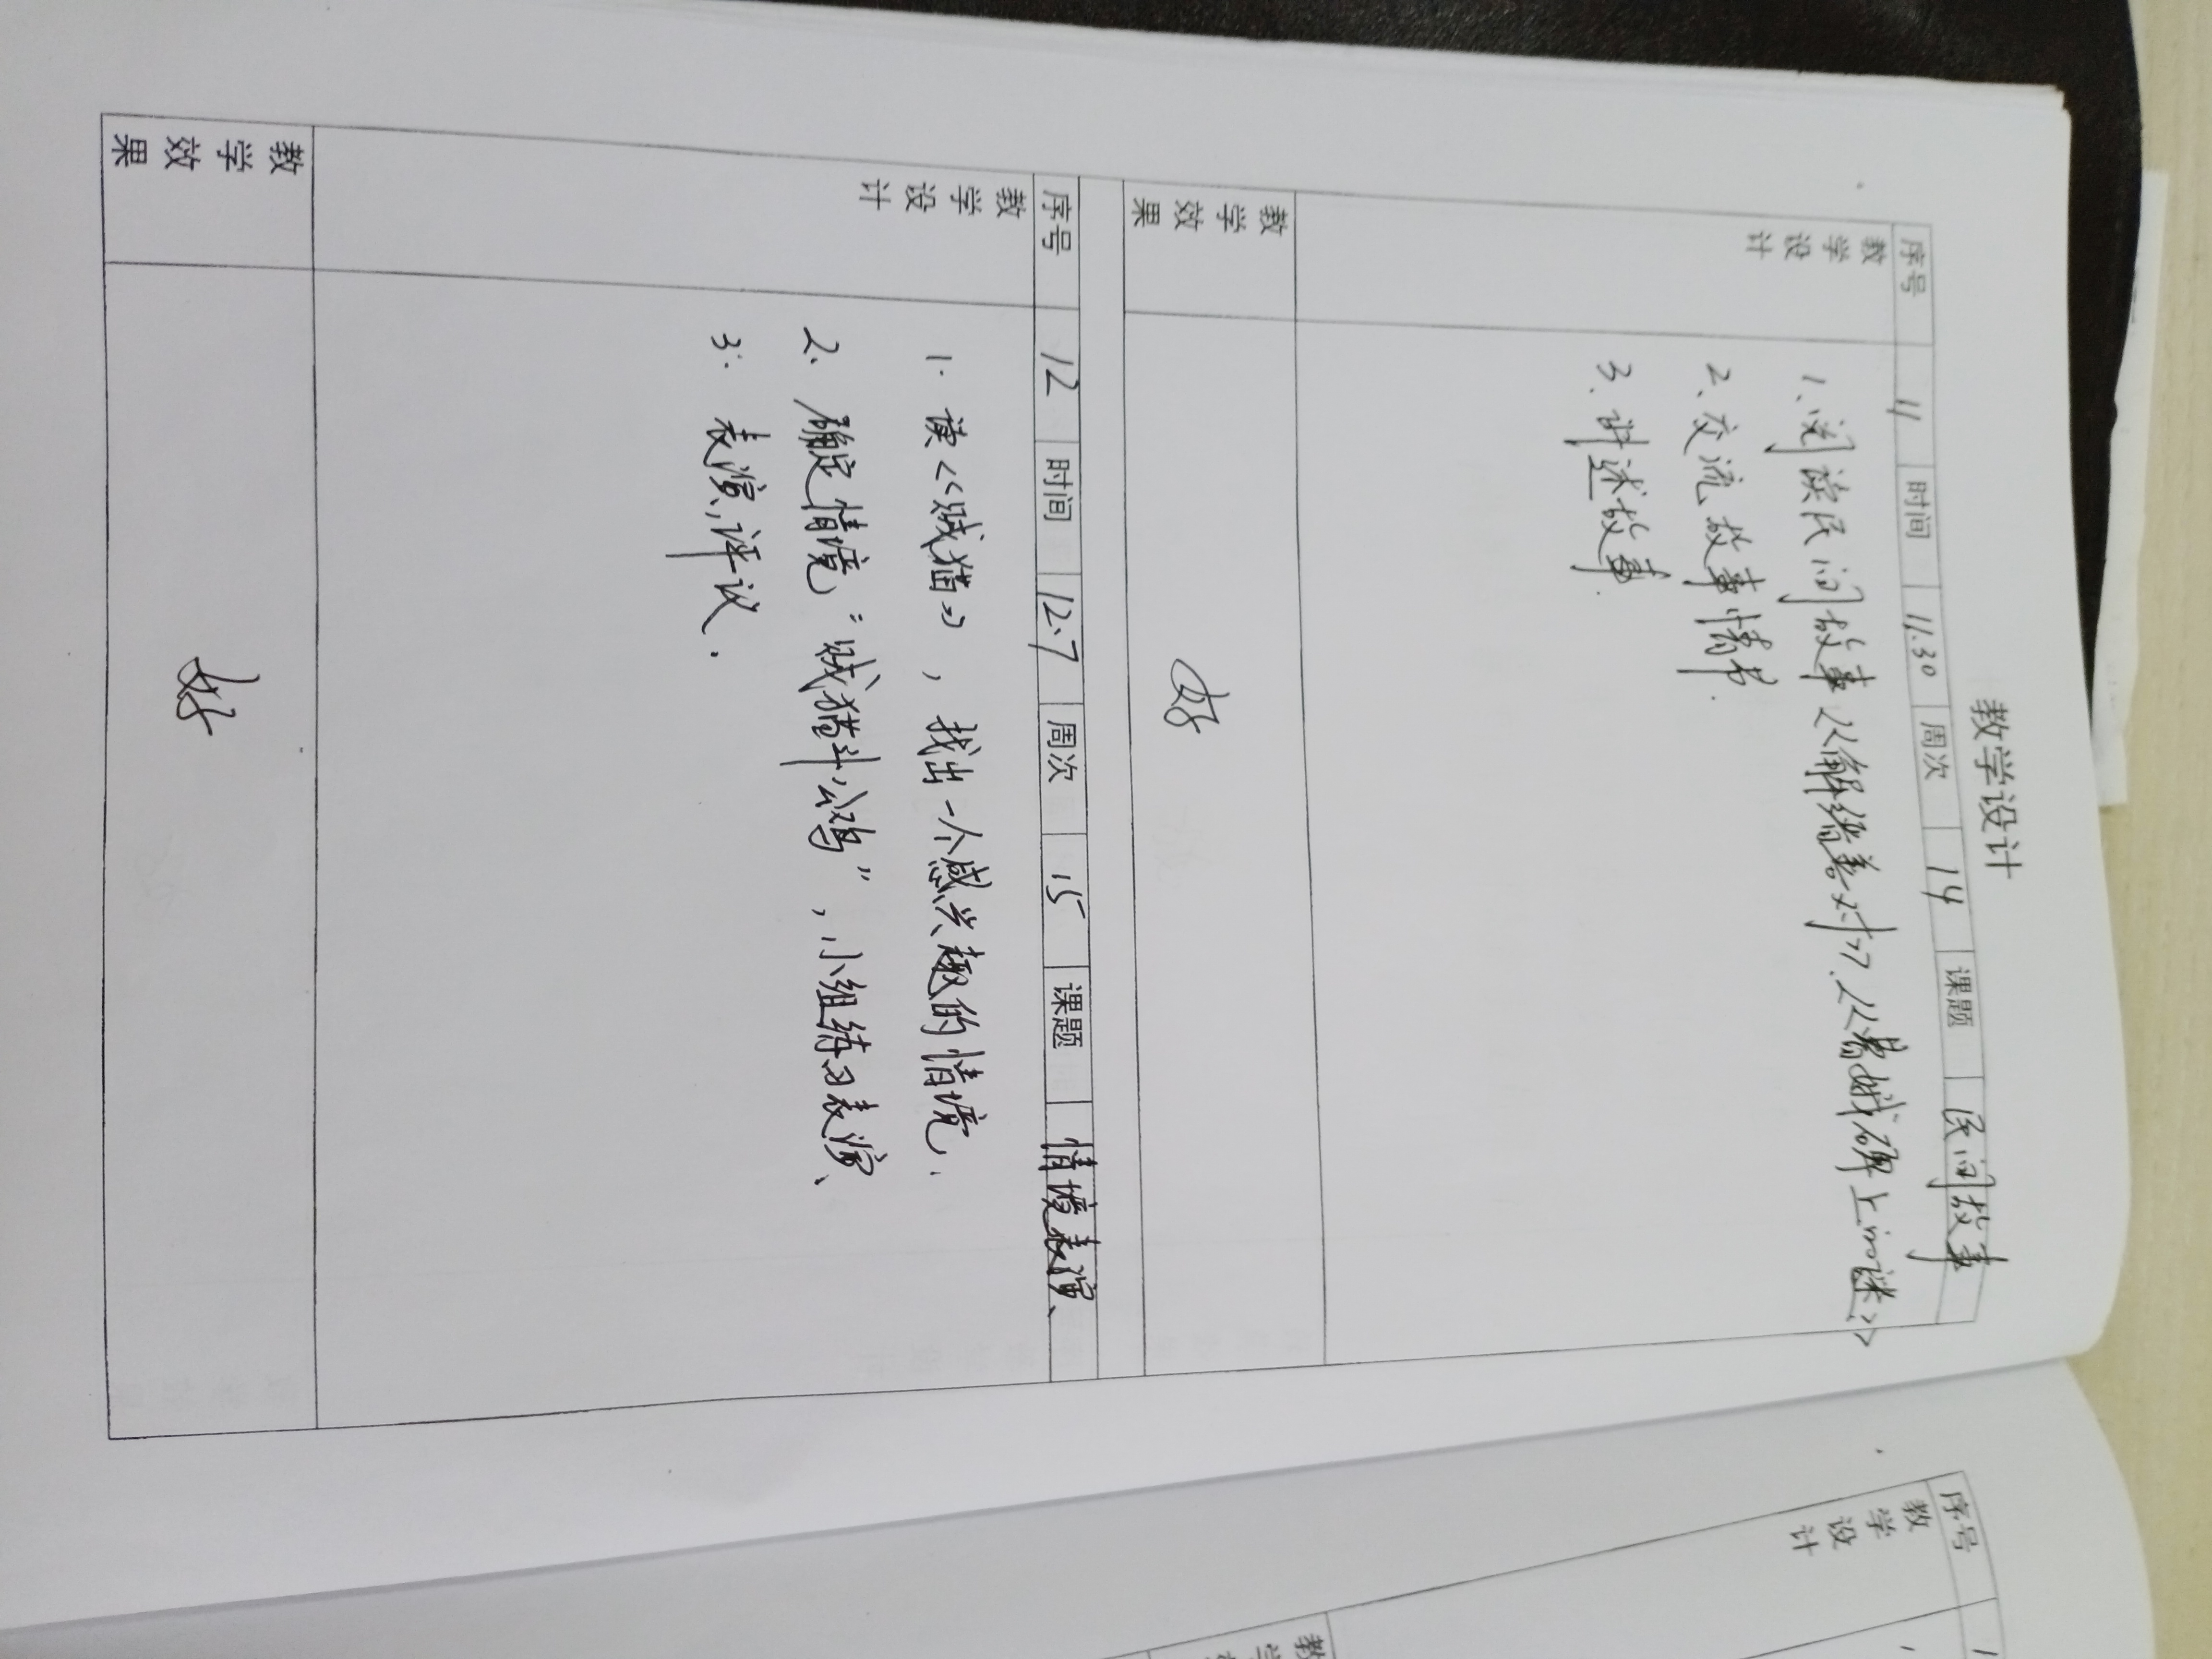 教学设计
序号 11 时间 11.30 周次 14 课题 民间故事
教学设计
1、阅读民间故事《解缙善对》、《曹娥碑上的谜》
2、交流故事情节.
3、讲述故事.
教学效果
好
序号 12 时间 12.7 周次 15 课题 情境表演、
教学设计
1. 读《贼猫》，找出一个感兴趣的情境.
2. 确定情境"贼猫斗公鸡"，小组练习表演、
3. 表演,评议.
教学效果
好
序号 1
教学设计